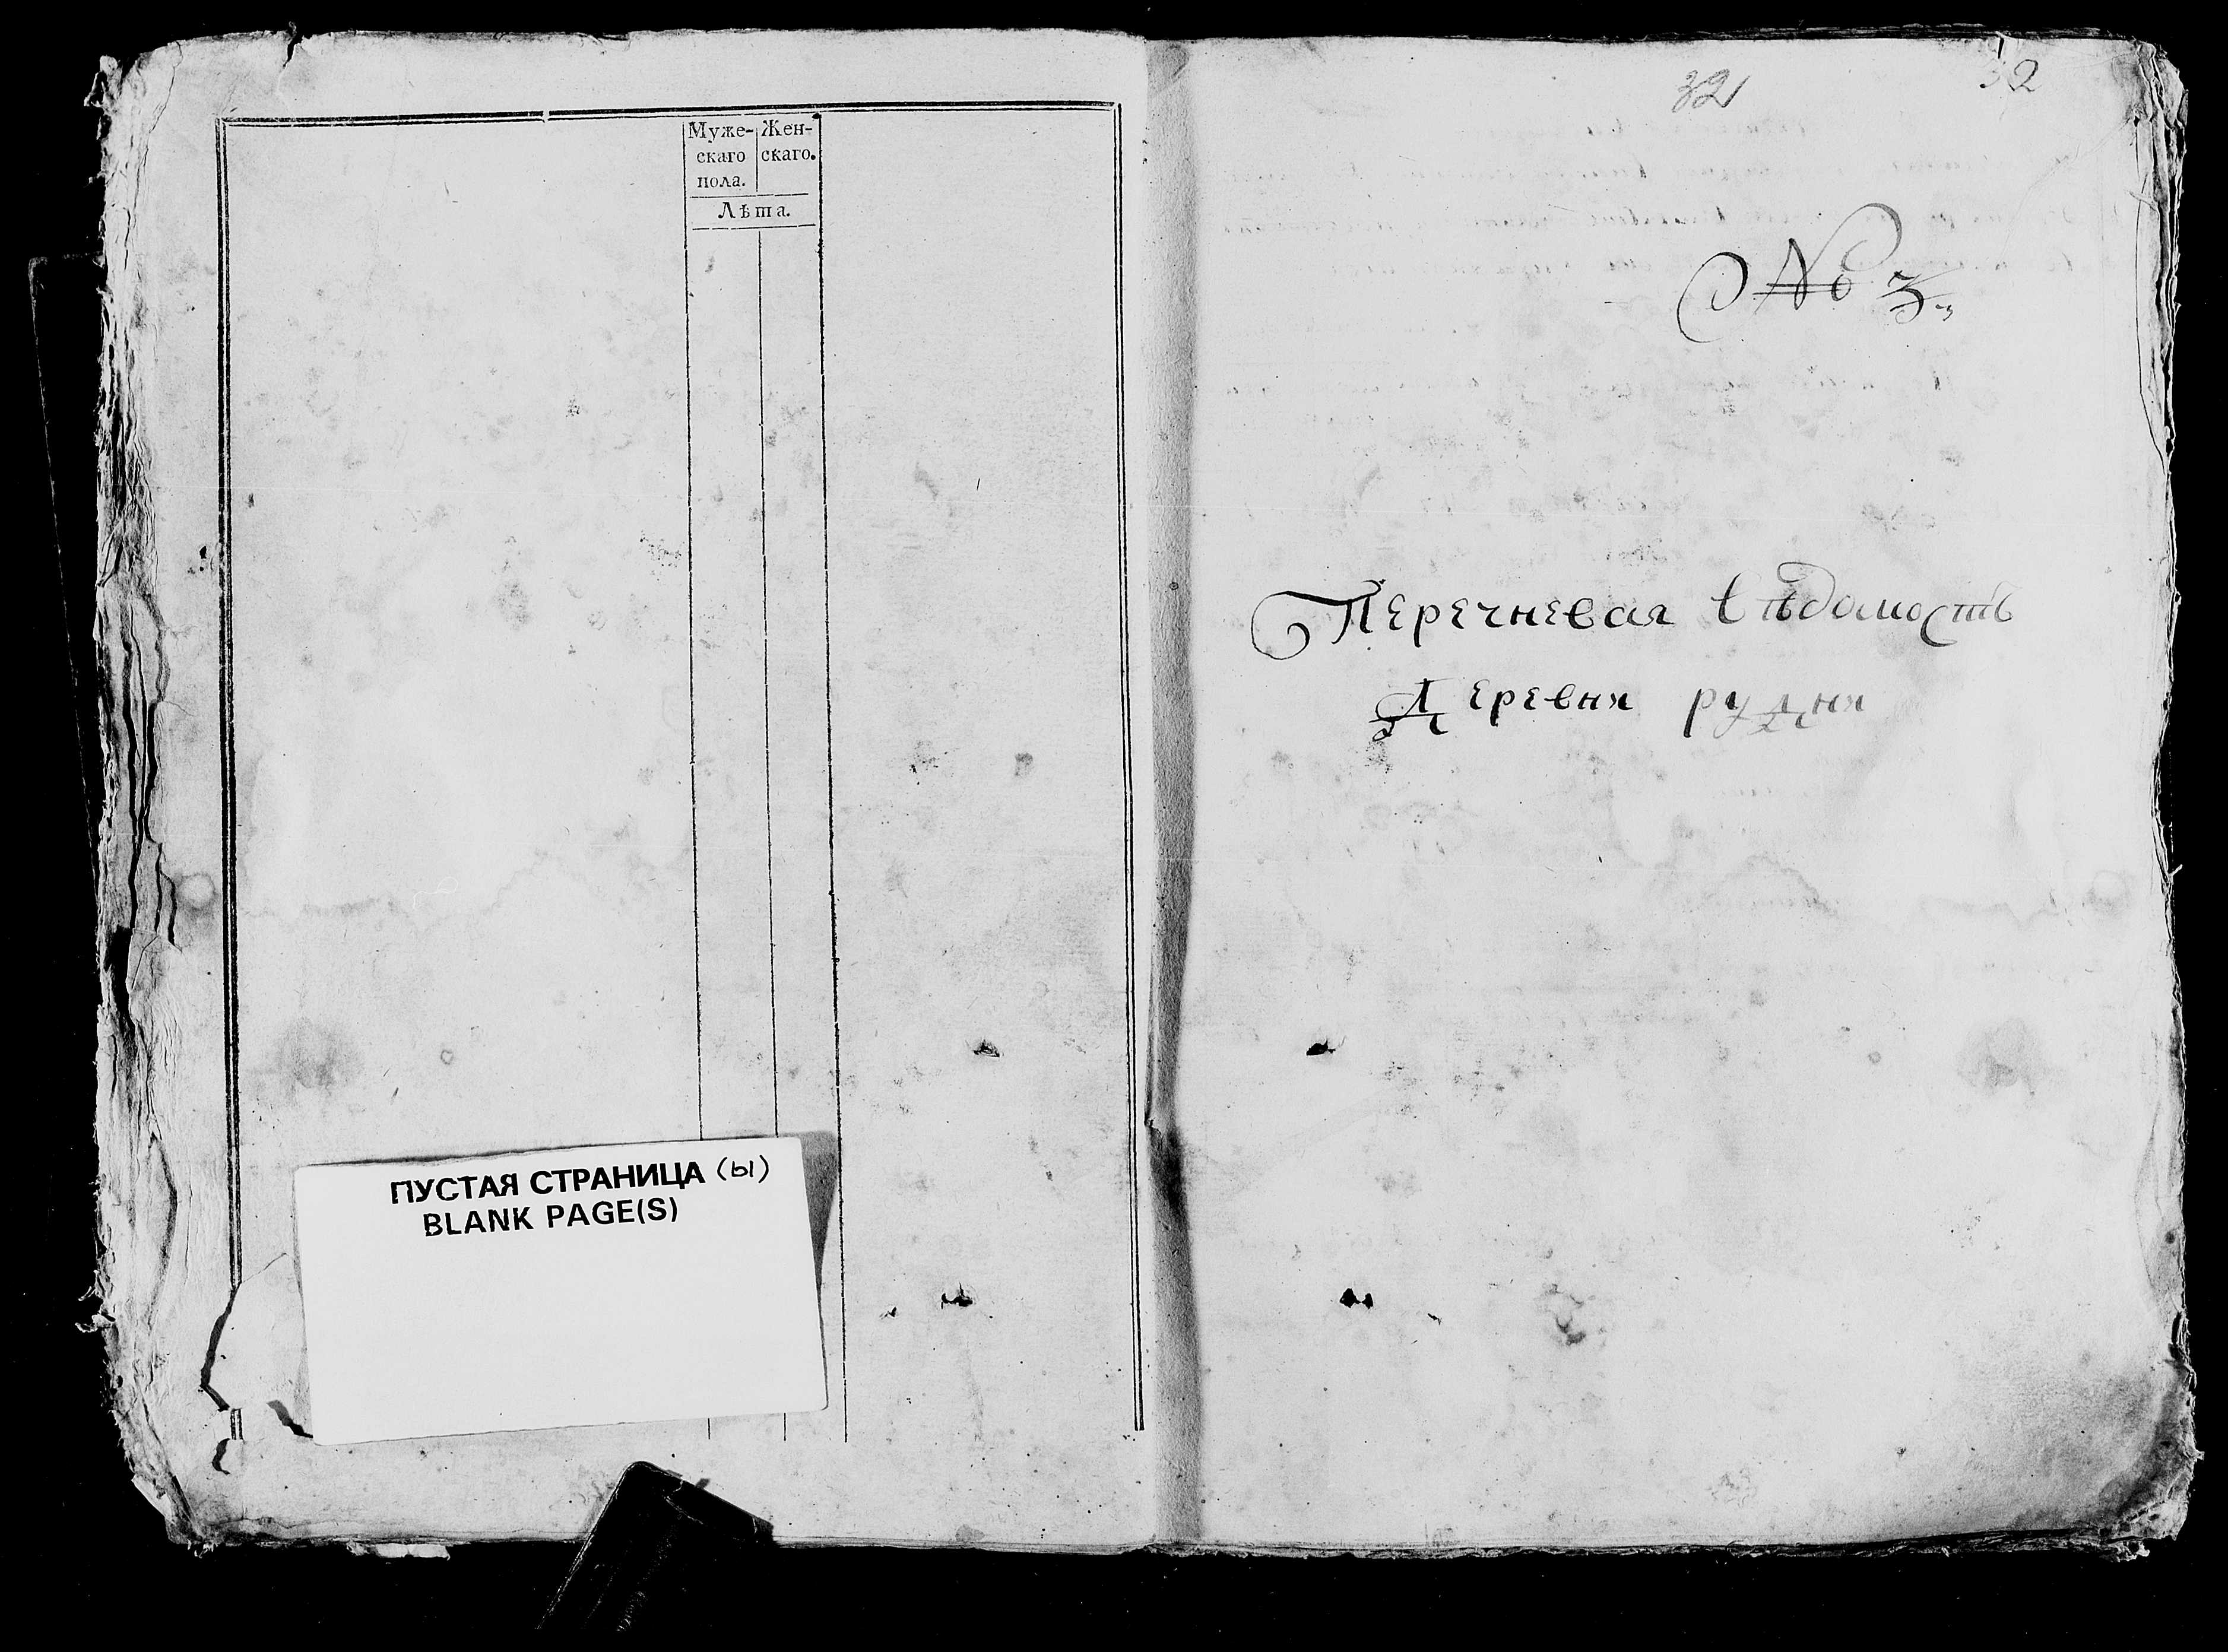 Муже-
скаго
пола.
Жен-
скаго.
Лѣта.
ПУСТАЯ СТРАНИЦА (ы)
BLANK PAGE(S)
32
32
№ 3
Перечневая вѣдомость
Деревня рудня